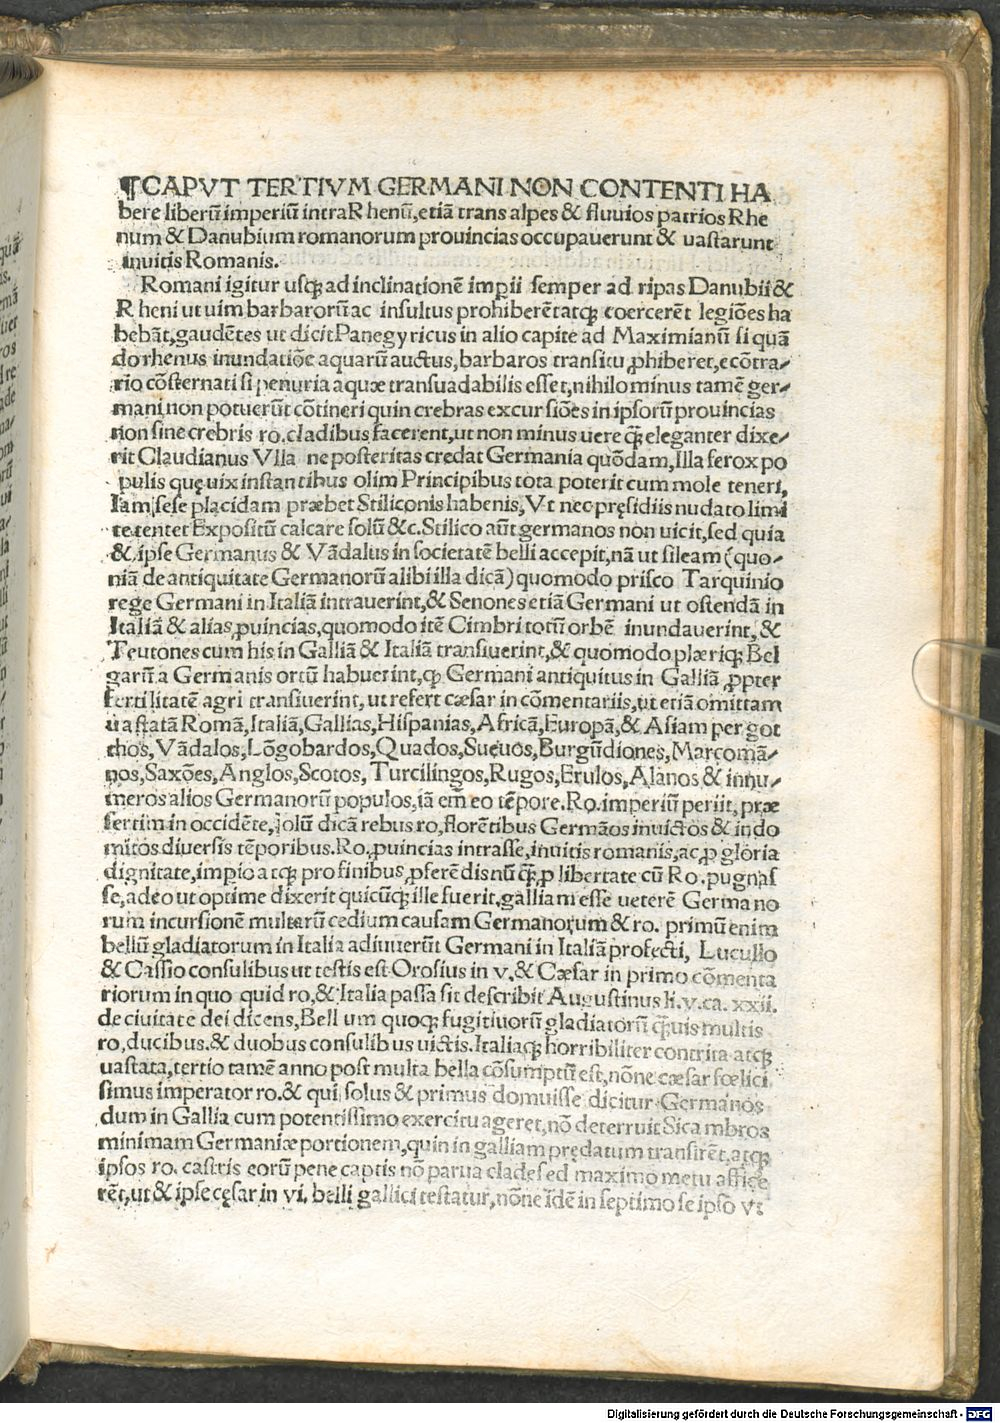 ¶CAPVT TERTIVM GERMANI NON CONTENTI HA
bere liberū imperiū intra Rhenū,etiā trans alpes & fluuios patrios Rhe
num & Danubium romanorum prouincias occupauerunt & uastarunt
inuitis Romanis.
Romani igitur usq; ad inclinationē impii semper ad ripas Danubii &
Rheni ut uim barbarorū ac insultus prohiberēt atq; coercerēt legiōes ha
bebāt,gaudētes ut dicit Panegyricus in alio capite ad Maximianū si quā
do rhenus inundatiōe aquarū auctus,barbaros transitu ꝓhiberet,ecōtra⸗
rio cōsternati si penuria aquæ transuadabilis esset,nihilominus tamē ger⸗
mani non potuerūt cōtineri quin crebras excursiōes in ipsorū prouincias
non sine crebris ro.cladibus facerent,ut non minus uere q̄; eleganter dixe⸗
rit Claudianus Vlla ne posteritas credat Germania quōdam,Illa ferox po
pulis quę uix instantibus olim Principibus tota poterit cum mole teneri,
Iam sese placidam præbet Stiliconis habenis,Vt nec pręsidiis nudato limi
te tentet Expositū calcare solū &c.Stilico aūt germanos non uicit,sed quia
& ipse Germanus & Vādalus in societatē belli accepit,nā ut sileam (quo⸗
niā de antiquitate Germanorū alibi illa dicā) quomodo prisco Tarquinio
rege Germani in Italiā intrauerint,& Senones etiā Germani ut ostendā in
Italiā & alias ꝓuincias,quomodo itē Cimbri totū orbē inundauerint,&
Teutones cum his in Galliā & Italiā transiuerint,& quomodo plæriq; Bel
garū a Germanis ortū habuerint,ꝙ Germani antiquitus in Galliā ꝓpter
fertilitatē agri transiuerint,ut refert cæsar in cōmentariis,ut etiā omittam
uastatā Romā,Italiā,Gallias,Hispanias,Africā,Europā,& Asiam per got
thos,Vādalos,Lōgobardos,Quados,Sueuos,Burgūdiones,Marcomā⸗
nos,Saxōes,Anglos,Scotos,Turcilingos,Rugos,Erulos,Alanos & innu⸗
meros alios Germanorū populos,iā em̄ eo tēpore.Ro.imperiū periit,præ
sertim in occidēte,solū dicā rebus ro,florētibus Germāos inuictos & indo
mitos diuersis tēporibus.Ro.ꝓuincias intrasse,inuitis romanis,ac ꝓ gloria
dignitate,impio atq; pro finibus ꝓferēdis nūq̄;ꝓ libertate cū Ro.pugnas
se,adeo ut optime dixerit quicūq; ille fuerit.galliam esse ueterē Germano
rum incursionē multarū cedium causam Germanorum & ro. primū enim
bellū gladiatorum in Italia adiuuerūt Germani in Italiā profecti, Lucullo
& Cassio consulibus ut testis est Orosius in v.& Cæsar in primo cōmenta
riorum in quo quid ro,& Italia passa sit describit Augustinus li.v.ca. xxii.
de ciuitate dei dicens,Bellum quoq; fugitiuorū gladiatorū q̄;uis multis
ro,ducibus.& duobus consulibus uictis.Italiaq; horribiliter contrita atq;
uastata,tertio tamē anno post multa bella cōsumptū est,nōne cæsar fœlici
simus imperator ro.& qui solus & primus domuisse dicitur Germanos
dum in Gallia cum potentissimo exercitu ageret,nō deterruit Sicambros
minimam Germaniæ portionem,quin in galliam prędatum transirēt,atq;
ipsos ro. castris eorū pene captis nō parua clade sed maximo metu affice
rēt,ut & ipse cęsar in vi. belli gallici testatur,nōne idē in septimo se ipsō vt
Digitalisierung gefördert durch die Deutsche Forschungsgemeinschaft - DFG